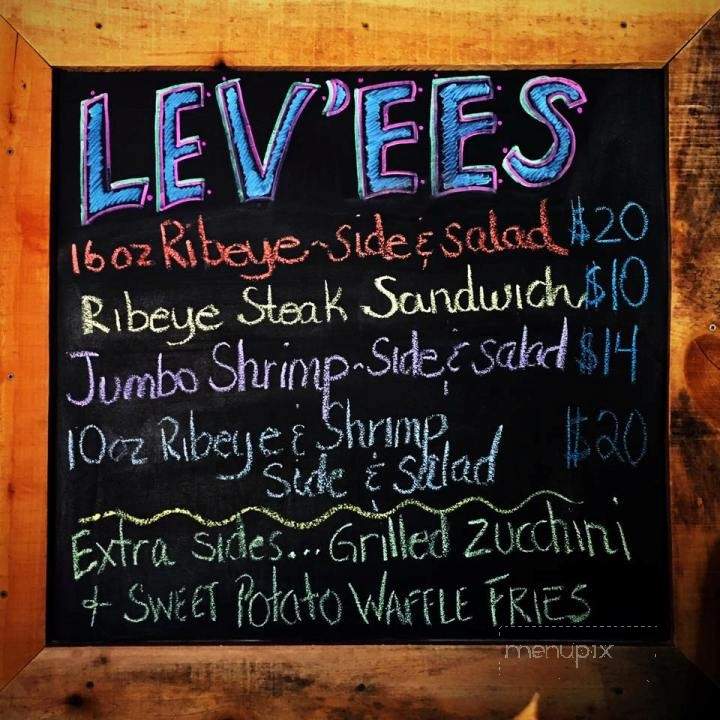 LEV'EES
16oz Ribeye~Side & Salad $20
Ribeye Steak Sandwich $10
Jumbo Shrimp~Side & Salad $14
10oz Ribeye & Shrimp $20
Side & Salad
Extra sides... Grilled Zucchini
+ SWEET Potato WAFFLE FRIES
menupix